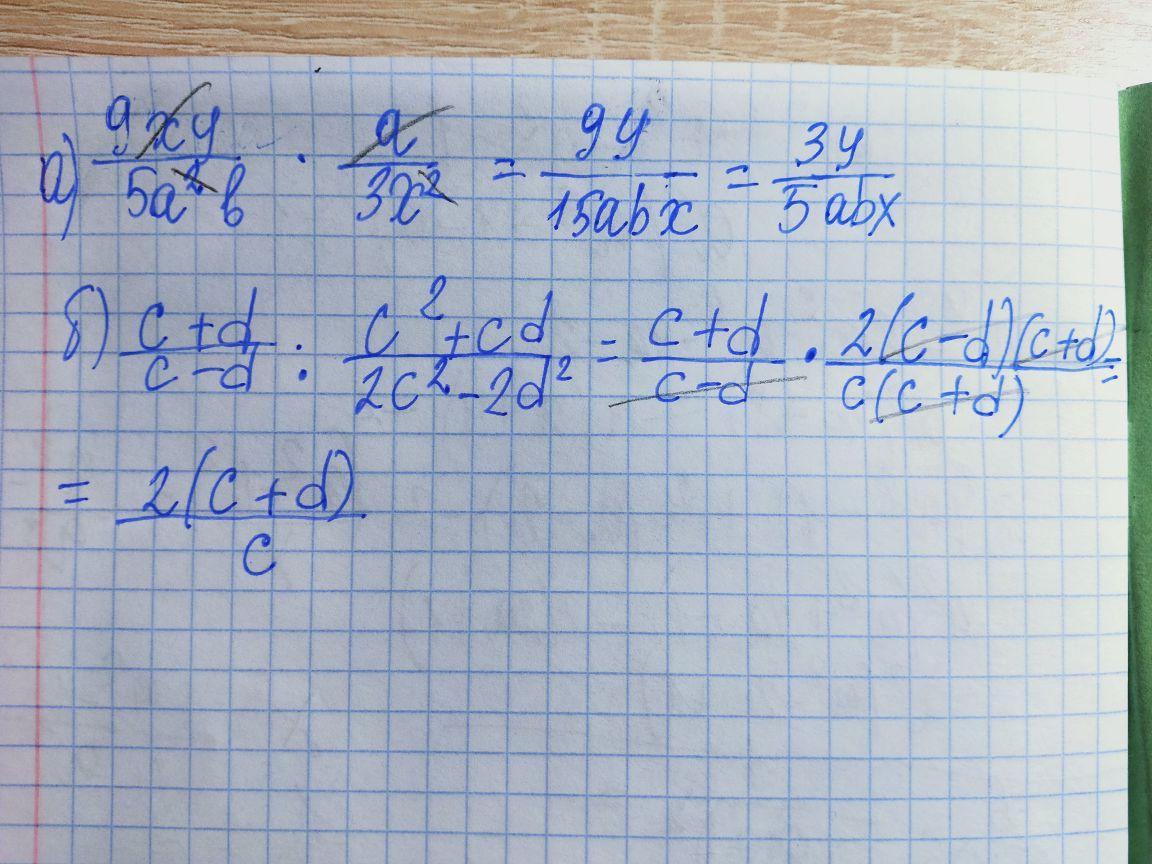 а) 9xy/5a²b · a/3x² = 9y/15abx = 3y/5abx
б) c+d/c-d : c²+cd/2c²-2d² = c+d/c-d · 2(c-d)(c+d)/c(c+d) =
= 2(c+d)/c